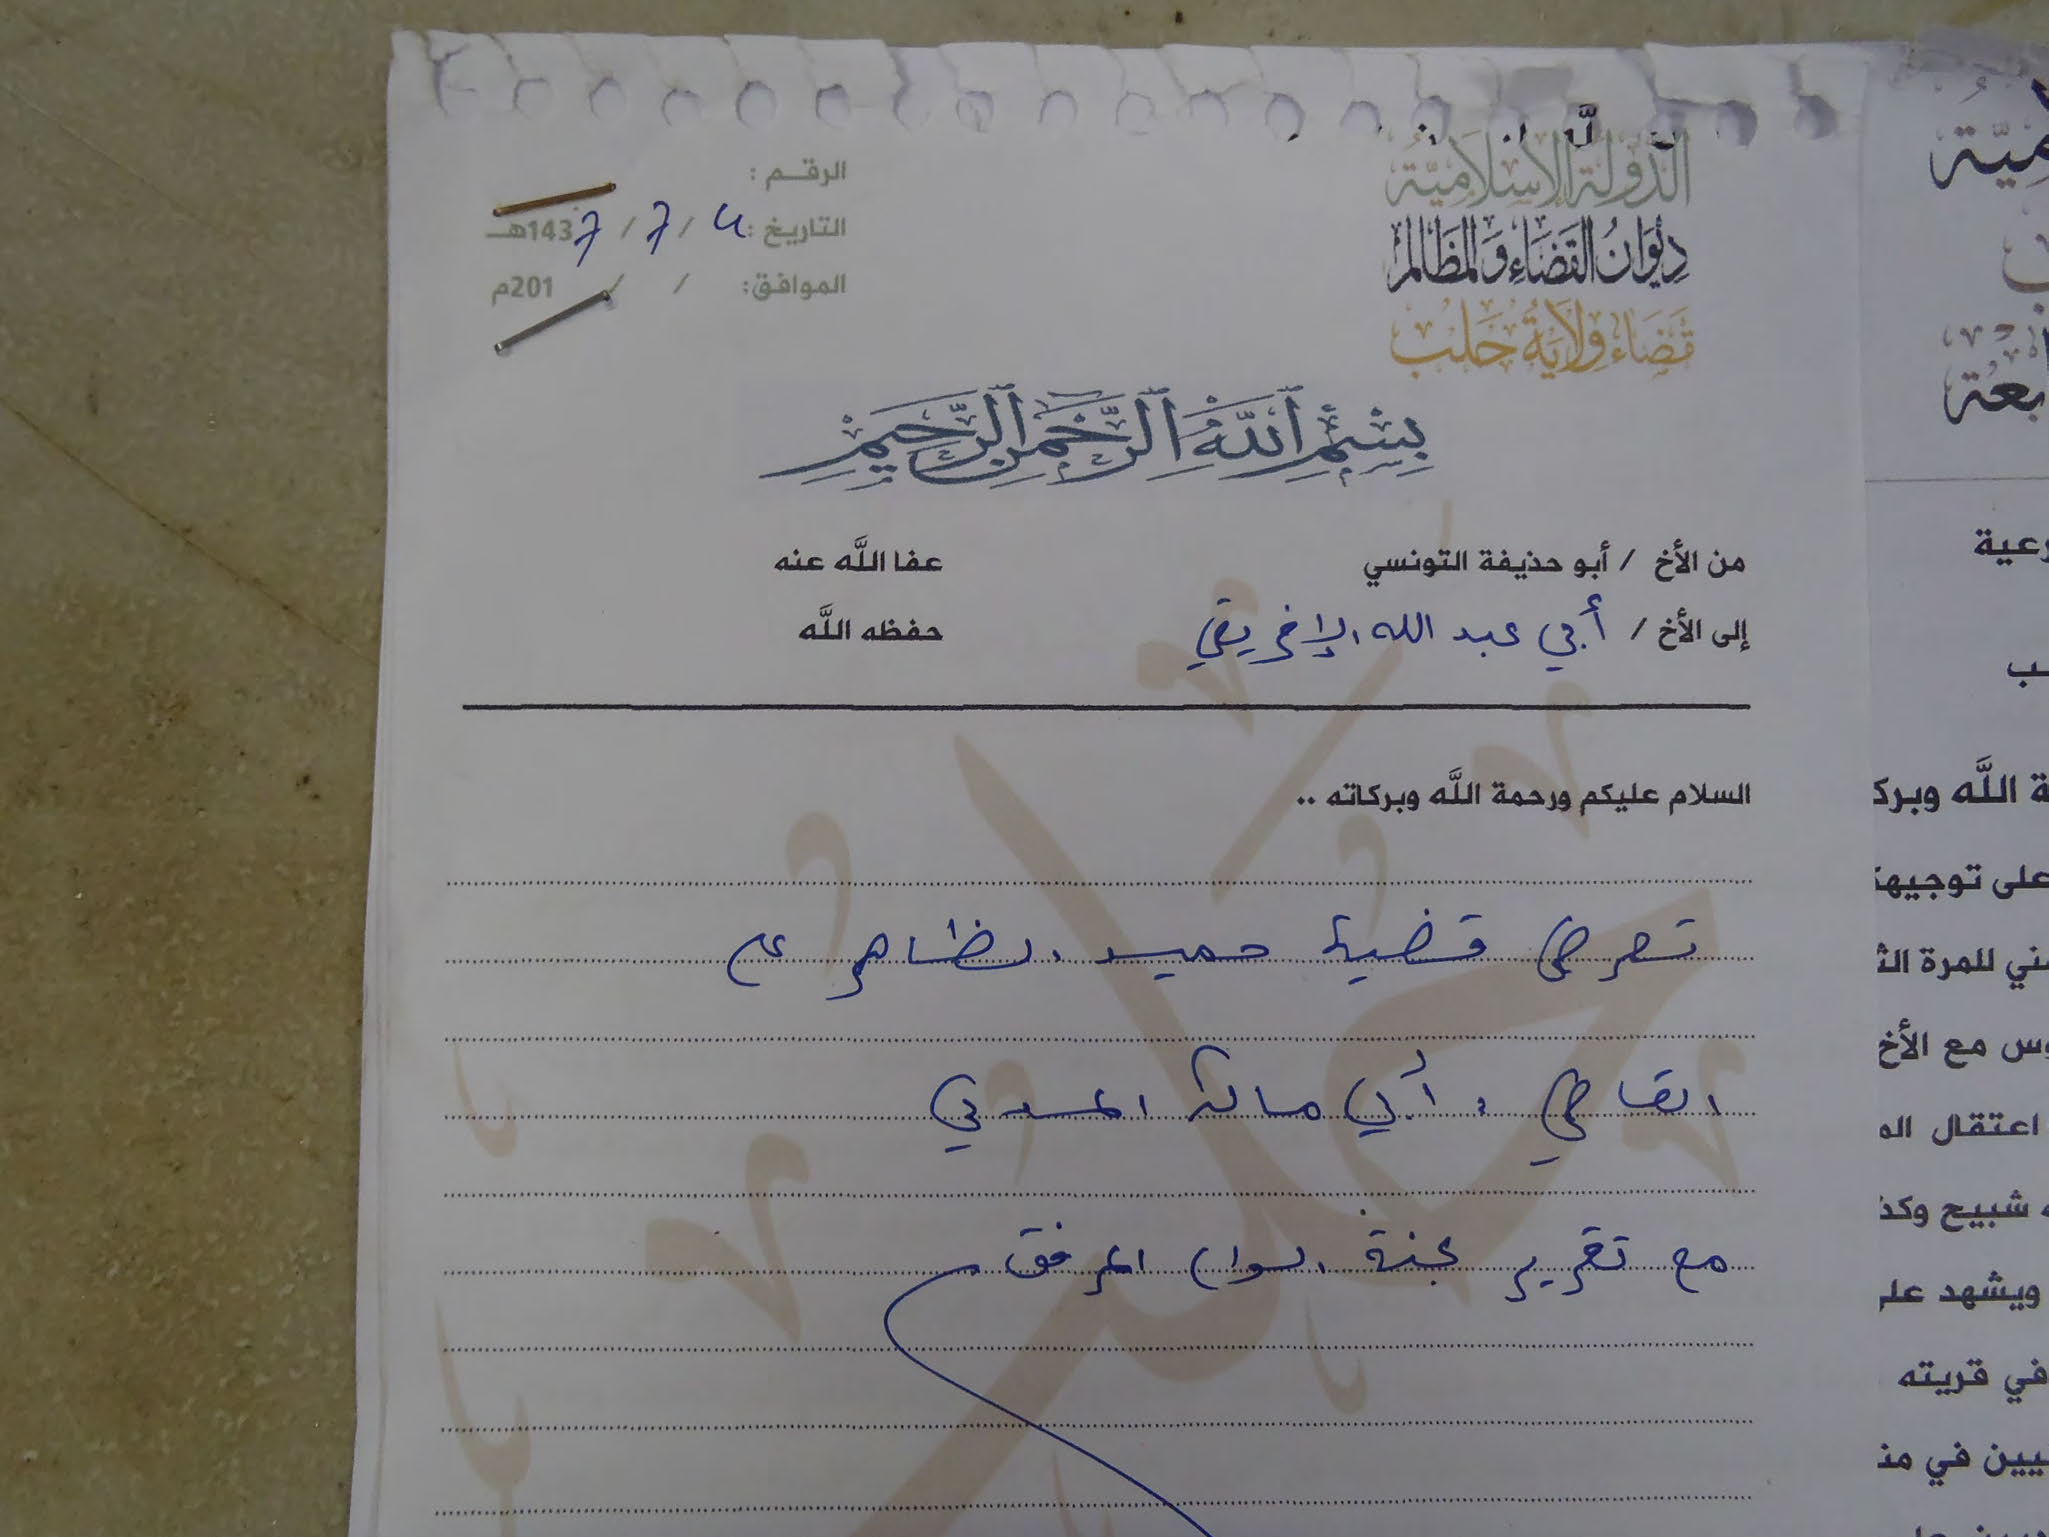 الدولة الإسلامية
ديوان القضاء والمظالم
قضاء ولاية حلب
الرقم :
التاريخ : 4 / 7 / 1437هـ
الموافق: / / 201م
بسم الله الرحمن الرحيم
من الأخ / أبو حذيفة التونسي عفا الله عنه
إلى الأخ / أبي عبد الله الإفريقي حفظه الله
السلام عليكم ورحمة الله وبركاته ..
تعرض قضية حميد الظاهر على
القاضي أبي مارية المدني
مع تقرير لجنة المرفق
مية
بعة
رعية
ـب
ة الله وبرك
على توجيه
ني للمرة الث
وس مع الأخ
اعتقال الم
ه شبيح وكذ
ويشهد على
في قريته
ييين في منـ